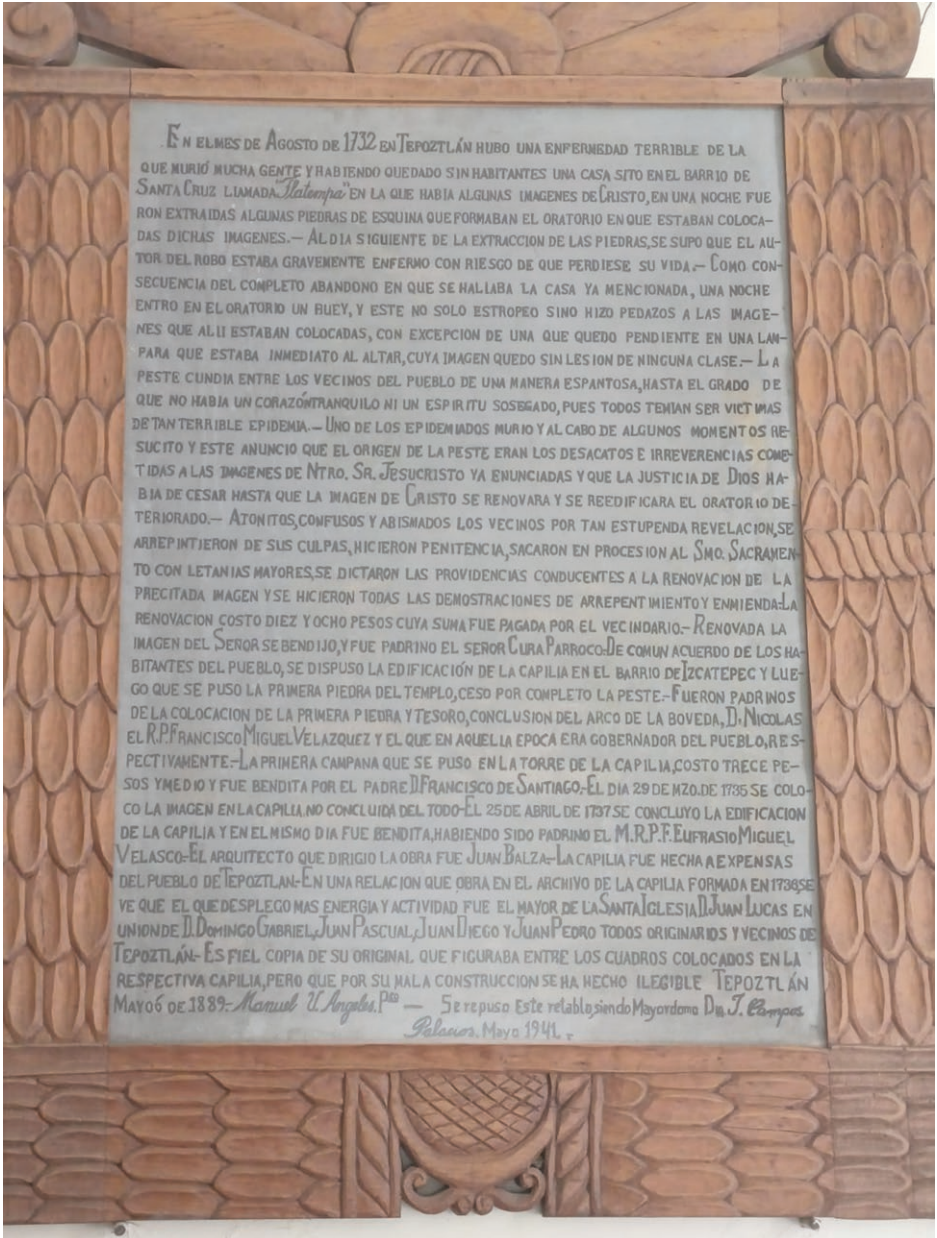 EN EL MES DE AGOSTO DE 1732 EN TEPOZTLÁN HUBO UNA ENFERMEDAD TERRIBLE DE LA
QUE MURIÓ MUCHA GENTE Y HABIENDO QUEDADO SIN HABITANTES UNA CASA SITO EN EL BARRIO DE
SANTA CRUZ LLAMADA "Tlatempa" EN LA QUE HABIA ALGUNAS IMAGENES DE CRISTO, EN UNA NOCHE FUE
RON EXTRAIDAS ALGUNAS PIEDRAS DE ESQUINA QUE FORMABAN EL ORATORIO EN QUE ESTABAN COLOCA-
DAS DICHAS IMAGENES.— AL DIA SIGUIENTE DE LA EXTRACCION DE LAS PIEDRAS, SE SUPO QUE EL AU-
TOR DEL ROBO ESTABA GRAVEMENTE ENFERMO CON RIESGO DE QUE PERDIESE SU VIDA.— COMO CON-
SECUENCIA DEL COMPLETO ABANDONO EN QUE SE HALLABA LA CASA YA MENCIONADA, UNA NOCHE
ENTRO EN EL ORATORIO UN BUEY, Y ESTE NO SOLO ESTROPEO SINO HIZO PEDAZOS A LAS IMAGE-
NES QUE ALLI ESTABAN COLOCADAS, CON EXCEPCION DE UNA QUE QUEDO PENDIENTE EN UNA LAM-
PARA QUE ESTABA INMEDIATO AL ALTAR, CUYA IMAGEN QUEDO SIN LESION DE NINGUNA CLASE.— LA
PESTE CUNDIA ENTRE LOS VECINOS DEL PUEBLO DE UNA MANERA ESPANTOSA, HASTA EL GRADO DE
QUE NO HABIA UN CORAZÓN TRANQUILO NI UN ESPIRITU SOSEGADO, PUES TODOS TEMIAN SER VICTIMAS
DE TAN TERRIBLE EPIDEMIA.— UNO DE LOS EPIDEMIADOS MURIO Y AL CABO DE ALGUNOS MOMENTOS RE-
SUCITO Y ESTE ANUNCIO QUE EL ORIGEN DE LA PESTE ERAN LOS DESACATOS E IRREVERENCIAS COME-
TIDAS A LAS IMAGENES DE NTRO. SR. JESUCRISTO YA ENUNCIADAS Y QUE LA JUSTICIA DE DIOS HA-
BIA DE CESAR HASTA QUE LA IMAGEN DE CRISTO SE RENOVARA Y SE REEDIFICARA EL ORATORIO DE-
TERIORADO.— ATONITOS, CONFUSOS Y ABISMADOS LOS VECINOS POR TAN ESTUPENDA REVELACION, SE
ARREPINTIERON DE SUS CULPAS, HICIERON PENITENCIA, SACARON EN PROCESION AL SMO. SACRAMEN-
TO CON LETANIAS MAYORES, SE DICTARON LAS PROVIDENCIAS CONDUCENTES A LA RENOVACION DE LA
PRECITADA IMAGEN Y SE HICIERON TODAS LAS DEMOSTRACIONES DE ARREPENTIMIENTO Y ENMIENDA.-LA
RENOVACION COSTO DIEZ Y OCHO PESOS CUYA SUMA FUE PAGADA POR EL VECINDARIO.- RENOVADA LA
IMAGEN DEL SEÑOR SE BENDIJO, Y FUE PADRINO EL SEÑOR CURA PARROCO.-DE COMUN ACUERDO DE LOS HA-
BITANTES DEL PUEBLO, SE DISPUSO LA EDIFICACIÓN DE LA CAPILLA EN EL BARRIO DE IZCATEPEC Y LUE-
GO QUE SE PUSO LA PRIMERA PIEDRA DEL TEMPLO, CESO POR COMPLETO LA PESTE.- FUERON PADRINOS
DE LA COLOCACION DE LA PRIMERA PIEDRA Y TESORO, CONCLUSION DEL ARCO DE LA BOVEDA, D. NICOLAS
EL R.P. FRANCISCO MIGUEL VELAZQUEZ Y EL QUE EN AQUELLA EPOCA ERA GOBERNADOR DEL PUEBLO, RES-
PECTIVAMENTE.-LA PRIMERA CAMPANA QUE SE PUSO EN LA TORRE DE LA CAPILLA, COSTO TRECE PE-
SOS Y MEDIO Y FUE BENDITA POR EL PADRE D. FRANCISCO DE SANTIAGO.-EL DIA 29 DE MZO. DE 1735 SE COLO-
CO LA IMAGEN EN LA CAPILLA, NO CONCLUIDA DEL TODO-EL 25 DE ABRIL DE 1737 SE CONCLUYO LA EDIFICACION
DE LA CAPILLA Y EN EL MISMO DIA FUE BENDITA, HABIENDO SIDO PADRINO EL M.R.P.F. EUFRASIO MIGUEL
VELASCO-EL ARQUITECTO QUE DIRIGIO LA OBRA FUE JUAN BALZA-LA CAPILLA FUE HECHA A EXPENSAS
DEL PUEBLO DE TEPOZTLAN-EN UNA RELACION QUE OBRA EN EL ARCHIVO DE LA CAPILLA FORMADA EN 1738, SE
VE QUE EL QUE DESPLEGO MAS ENERGIA Y ACTIVIDAD FUE EL MAYOR DE LA SANTA IGLESIA D. JUAN LUCAS EN
UNION DE D. DOMINGO GABRIEL, JUAN PASCUAL, JUAN DIEGO Y JUAN PEDRO TODOS ORIGINARIOS Y VECINOS DE
TEPOZTLÁN.- ES FIEL COPIA DE SU ORIGINAL QUE FIGURABA ENTRE LOS CUADROS COLOCADOS EN LA
RESPECTIVA CAPILLA, PERO QUE POR SU MALA CONSTRUCCION SE HA HECHO ILEGIBLE TEPOZTLÁN
MAYO 6 DE 1889.- Manuel V. Angeles. Pbo — Se repuso Este retablo, siendo Mayordomo Dn. J. Campos
Palacios. Mayo 1941.